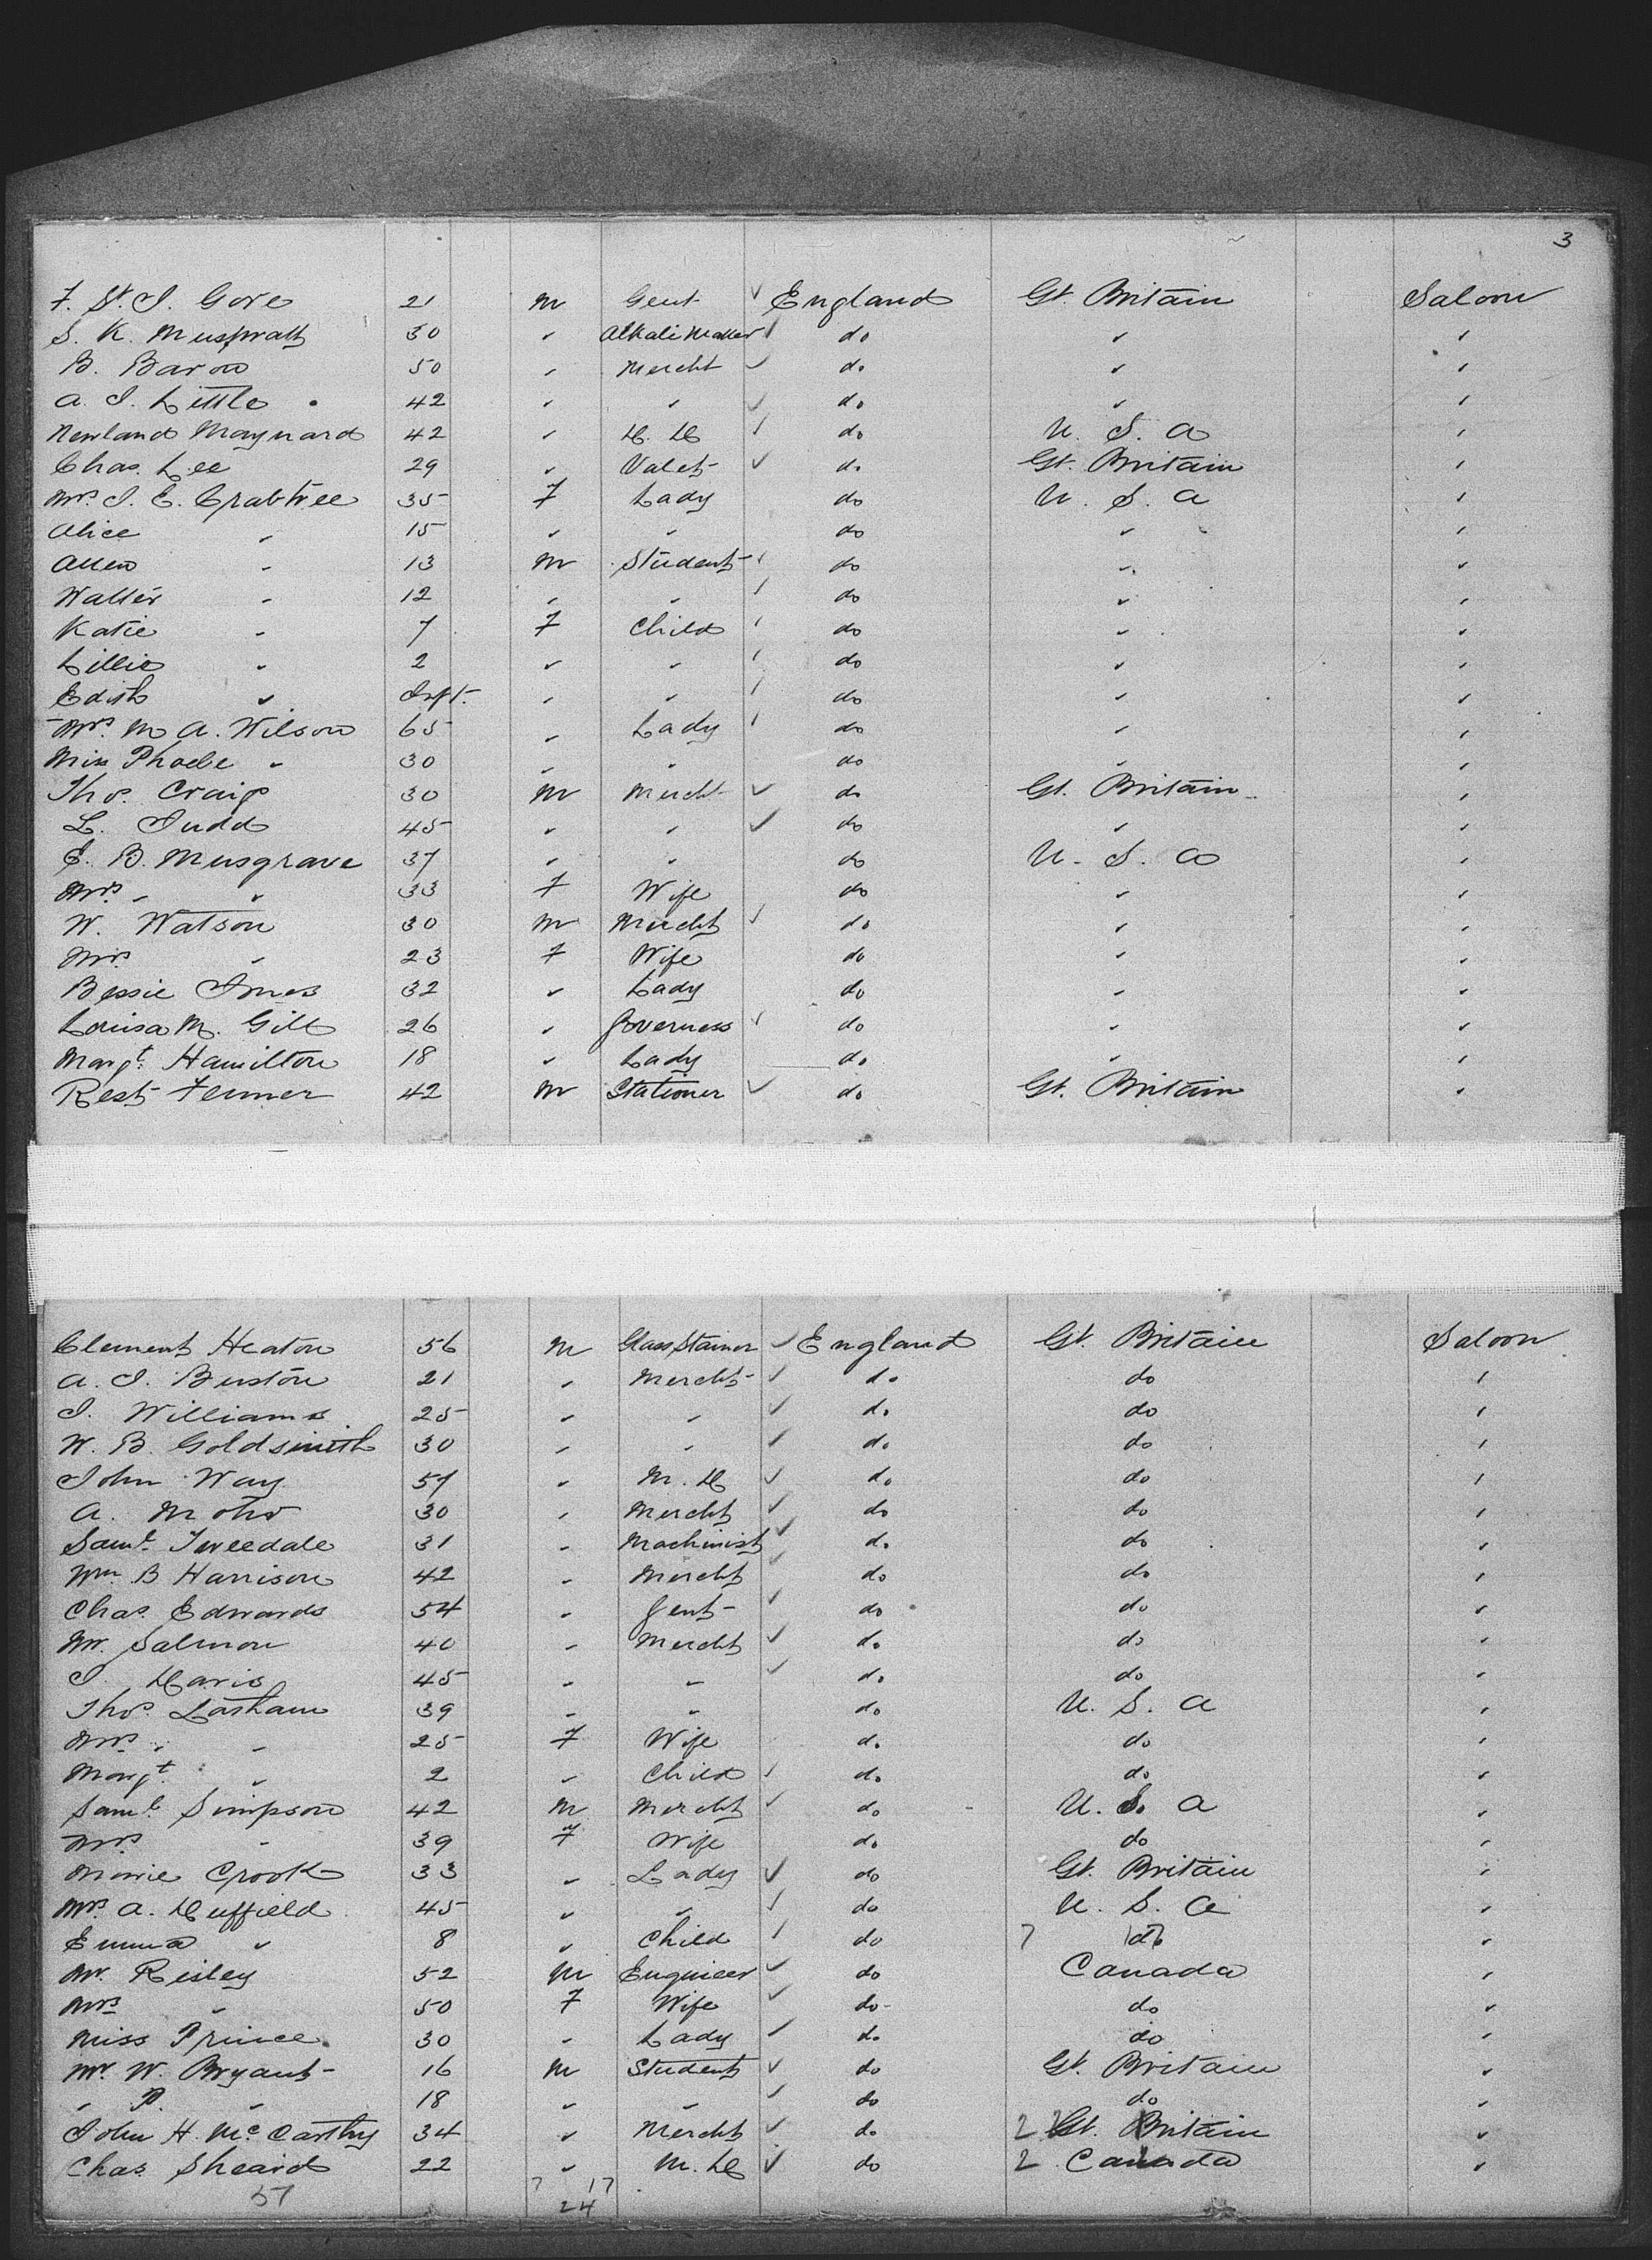 3
F. St. J. Gore 21 M Gent ✓ England Gt. Britain Saloon
S. K. Muspratt 30 " Alkali Maker ✓ do " "
B. Baron 50 " Mercht ✓ do " "
A. J. Little 42 " " ✓ do " "
Newland Maynard 42 " D. D ✓ do U. S. A "
Chas. Lee 29 " Valet ✓ do Gt. Britain "
Mrs. J. E. Crabtree 35 F Lady do U. S. A "
Alice " 15 " " do " "
Allen " 13 M Student ✓ do " "
Walter " 12 " " ✓ do " "
Katie " 7 F Child ✓ do " "
Lillie " 2 " " ✓ do " "
Edith " Inft. " " ✓ do " "
Mrs. M A. Wilson 65 " Lady ✓ do " "
Miss Phoebe " 30 " " do " "
Thos. Craig 30 M Mercht ✓ do Gt. Britain "
L. Judd 45 " " ✓ do " "
E. B. Musgrave 37 " " do U. S. A "
Mrs " " 33 F Wife do " "
W. Watson 30 M Mercht ✓ do " "
Mrs " 23 F Wife do " "
Bessie Innes 32 " Lady do " "
Louisa M. Gill 26 " Governess ✓ do " "
Margt. Hamilton 18 " Lady do " "
Rest Fenner 42 M Stationer ✓ do Gt. Britain "
Clement Heaton 56 M Glass Stainer ✓ England Gt. Britain Saloon
A. J. Buston 21 " Mercht ✓ do do "
J. Williams 25 " " ✓ do do "
W. B. Goldsmith 30 " " ✓ do do "
John Way 57 " M. D ✓ do do "
A. 30 " Mercht ✓ do do "
Saml. Tweedale 31 " Machinist ✓ do do "
Wm. B Harrison 42 " Mercht ✓ do do "
Chas. Edwards 54 " Gent ✓ do do "
Mr. Salmon 40 " Mercht ✓ do do "
J. Davis 45 " " ✓ do do "
Thos. Lasham 39 " " do U. S. A "
Mrs. " " 25 F Wife do do "
Margt. " 2 " Child ✓ do do "
Saml. Simpson 42 M Mercht ✓ do U. S. A "
Mrs " 39 F Wife do do "
Marie Crook 33 " Lady ✓ do Gt. Britain "
Mrs. A. Duffield 45 " " ✓ do U. S. A "
Emma " 8 " Child ✓ do 7 do "
Mr. Risley 52 M Engineer ✓ do Canada "
Mrs " 50 F Wife ✓ do do "
Miss Prince 30 " Lady ✓ do do "
Mr. W. Bryant 16 M Student ✓ do Gt. Britain "
" P. " 18 " " ✓ do do "
John H. McCarthy 34 " Mercht ✓ do 2 Gt. Britain "
Chas. Sheard 22 " M. D ✓ do 2 Canada "
57 7 17
24